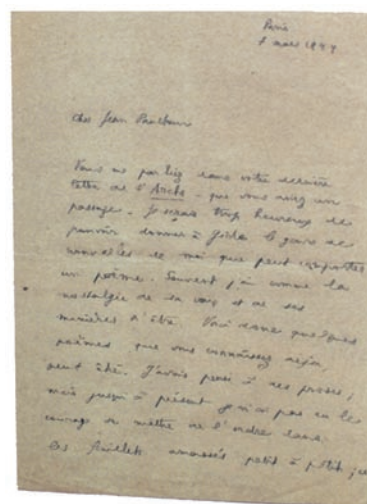 Paris
7 mars 1947
Cher Jean Paulhan
Vous me parliez dans votre dernière
lettre de l'Arche - que vous aviez un
passage. Je serais trop heureux de
pouvoir donner à le genre de
nouvelles de moi que peut comporter
un poème. Souvent j'ai comme la
nostalgie de sa voix et de ses
manières d'être. Voici donc quelques
poèmes que vous connaissez déjà,
peut être. J'avais pensé à des proses ;
mais jusqu'à présent je n'ai pas eu le
courage de mettre de l'ordre dans
les feuillets amassés petit à petit ;